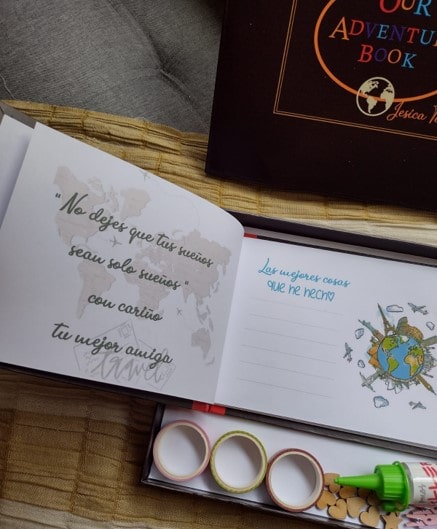 OUR
ADVENTURE
BOOK
Jesica
"No dejes que tus sueños
sean solo sueños"
con cariño
tu mejor amiga
travel
Las mejores cosas
que he hecho